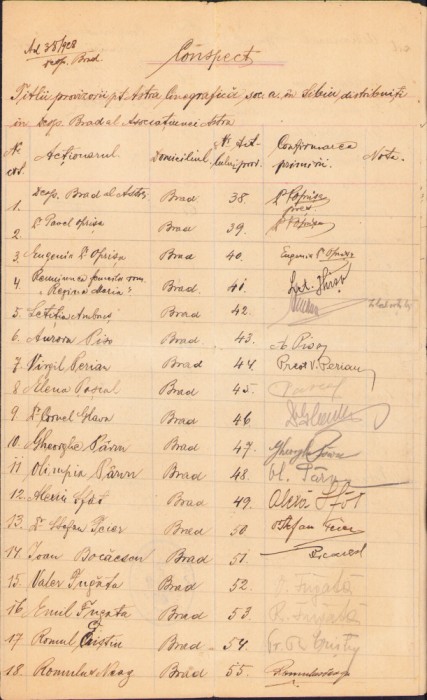 Ad 38/928
desp. Brad.
Conspect
Titlii provizorii pt Astra Cinegrafică soc. a. în Sibiu distribuiți
în Desp. Brad al Asociațiunei Astra
Nr. crt. Acționarul. Domiciliul Nr. tit- lului prov. Confirmarea primirii. Nota.
1. Desp. Brad al Astrei Brad 38.
2. Dr Pavel Oprișa Brad 39.
3. Eugenia Dr Oprișa Brad 40. Eugenia Dr Oprișa
4. Reuniunea femeilor rom. „Regina Maria" Brad. 41.
5. Letiția Ambruș Brad 42.
6. Aurora Piso Brad 43. A Piso
7. Virgil Perian Brad 44. Preot V. Perian
8 Elena Pascal Brad 45. Pascal
9 Dr Cornel Glava Brad 46
10. Gheorghe Pârvu Brad 47. Gheorghe Pârvu
11 Olimpia Pârvu Brad 48. Ol. Pârvu
12. Alexă Sfât Brad 49. Alexă Sfât
13. Dr Ștefan Feier Brad 50 Dr Ștefan Feier
14. Ioan Brad 51.
15. Valer Fugăta Brad 52. V. Fugăta
16 Emil Fugăta Brad 53 Fugăta
17 Romul Cristiu Brad 54.
18. Romulus Neag Brad 55. Romulus Neag